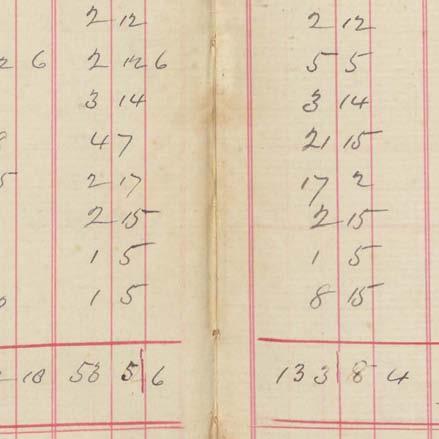 2 12 2 12
6 2 12 6 5 5
3 14 3 14
4 7 21 15
5 2 17 17 2
2 15 2 15
1 5 1 5
1 5 8 15
10 58 5 6 133 8 4